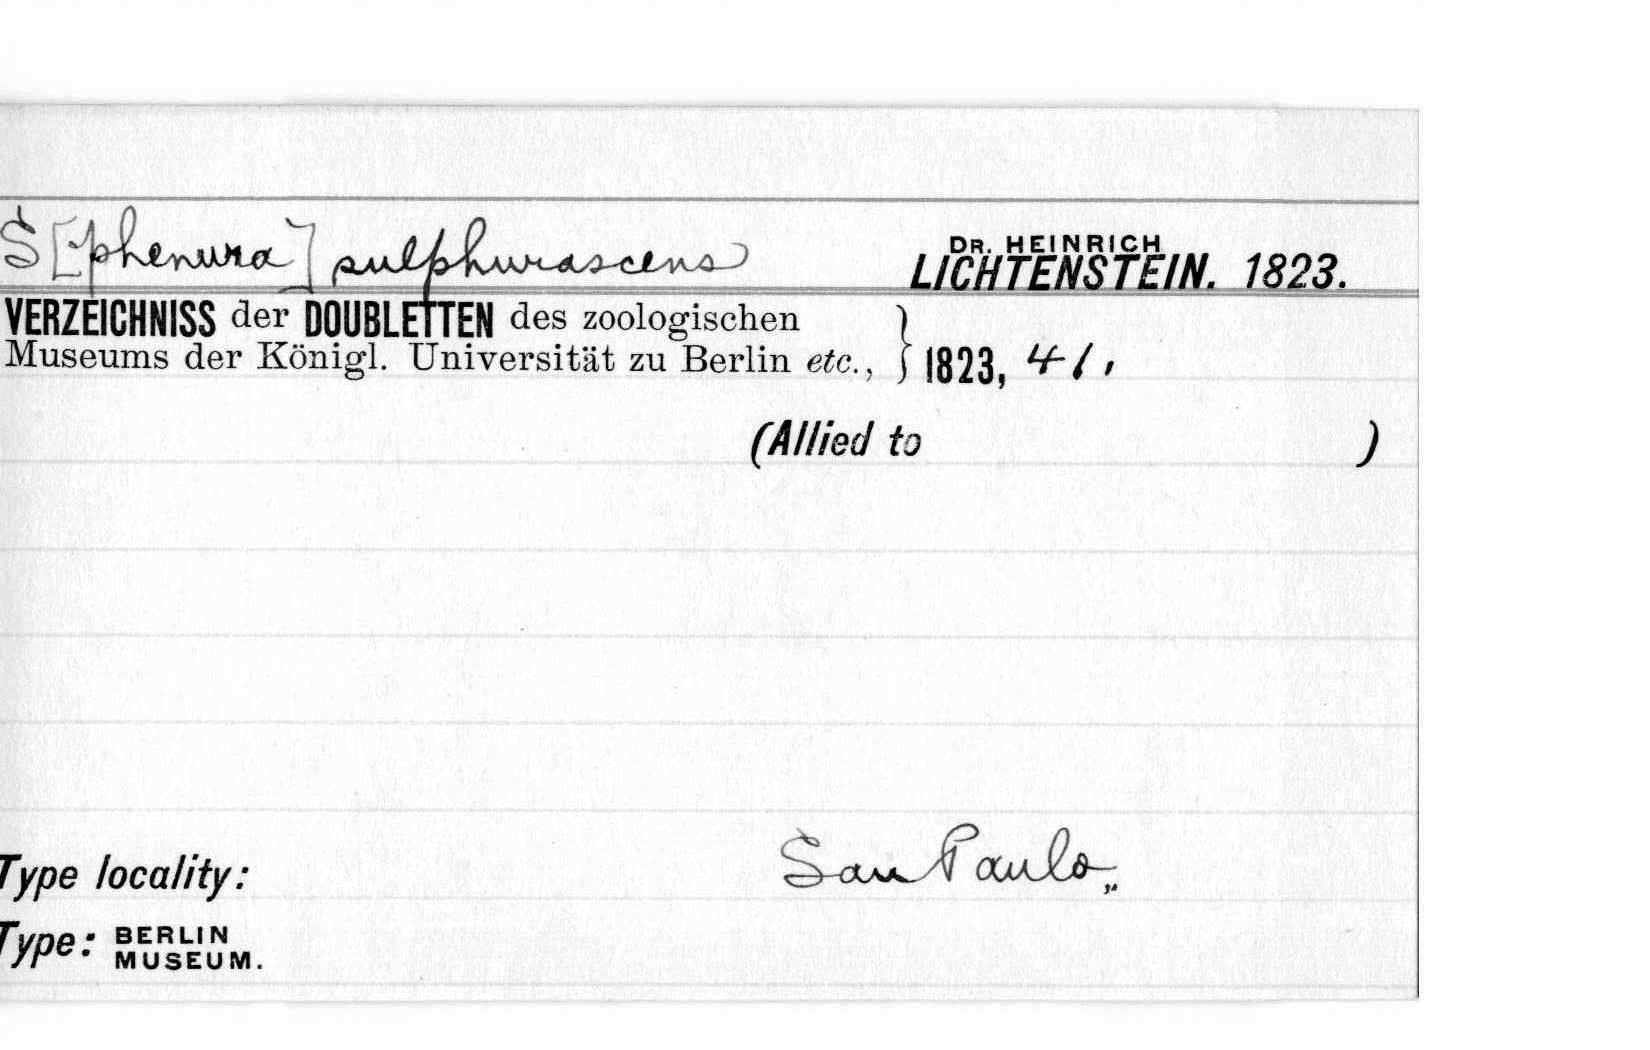 S[phenura] sulphurascens DR. HEINRICH LICHTENSTEIN. 1823.
VERZEICHNISS der DOUBLETTEN des zoologischen
Museums der Königl. Universität zu Berlin etc., } 1823, 41,
(Allied to )
Type locality: San Paulo,,
Type: BERLIN MUSEUM.